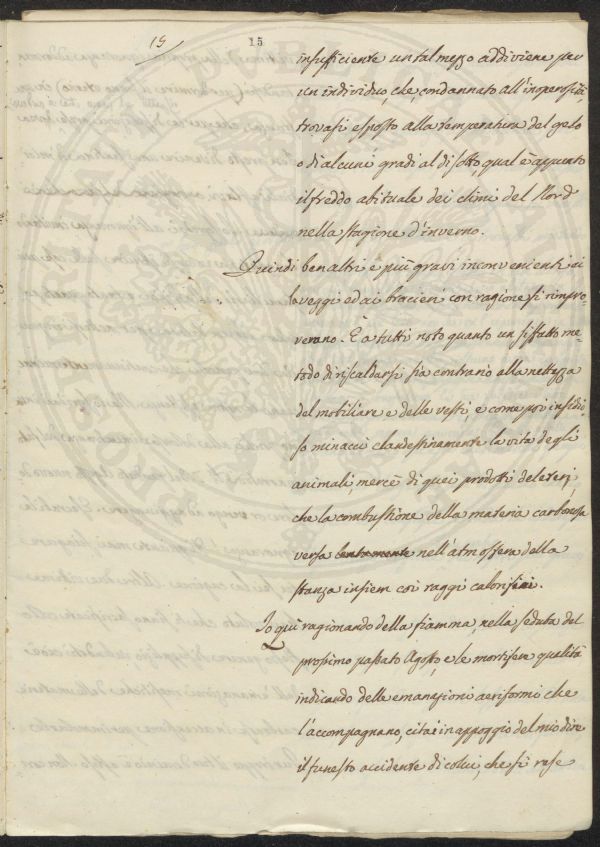 15 15
insufficiente un tal mezzo addiviene per
un individuo, che, condannato all'inoperosità,
trovasi esposto alla temperatura del gelo
o di alcuni gradi al disotto, qual è appunto
il freddo abituale dei climi del Nord
nella stagione d'inverno.
Quindi ben altri e più gravi inconvenienti ai
laveggi ed ai bracieri con ragione si rimpro-
verano. È a tutti noto quanto un siffatto me-
todo di riscaldarsi sia contrario alla nettezza
del mobiliare e delle vesti, e come poi insidio-
so minacci clandestinamente la vita degli
animali, mercè di quei prodotti deleterj,
che la combustione della materia carbonosa
versa lentamente nell'atmosfera della
stanza insiem coi raggi calorifici.
Io qui ragionando della fiamma, nella seduta del
prossimo passato Agosto, e le mortifere qualità
indicando delle emanazioni aeriformi che
l'accompagnano, citai in appoggio del mio dire
il funesto accidente di colui, che si rese